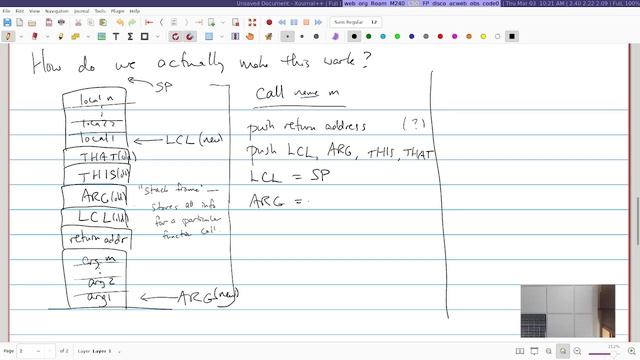 Unsaved Document - Xournal++ | Full
web org Roam M240 FP disco acweb obs code0
Thu Mar 03 10:21 AM
2.40 2.22 2.09
Full, 100%
Sans Regular 12
How do we actually make this work?
SP
local n
:
local 2
local 1
LCL (new)
THAT (old)
THIS (old)
ARG (old)
LCL (old)
return addr
arg m
:
arg 2
arg 1
ARG (new)
"stack frame" —
stores all info
for a particular
function call.
call name m
push return address (?)
push LCL, ARG, THIS, THAT
LCL = SP
ARG =
Page 2 of 2 Layer Layer 1
212%